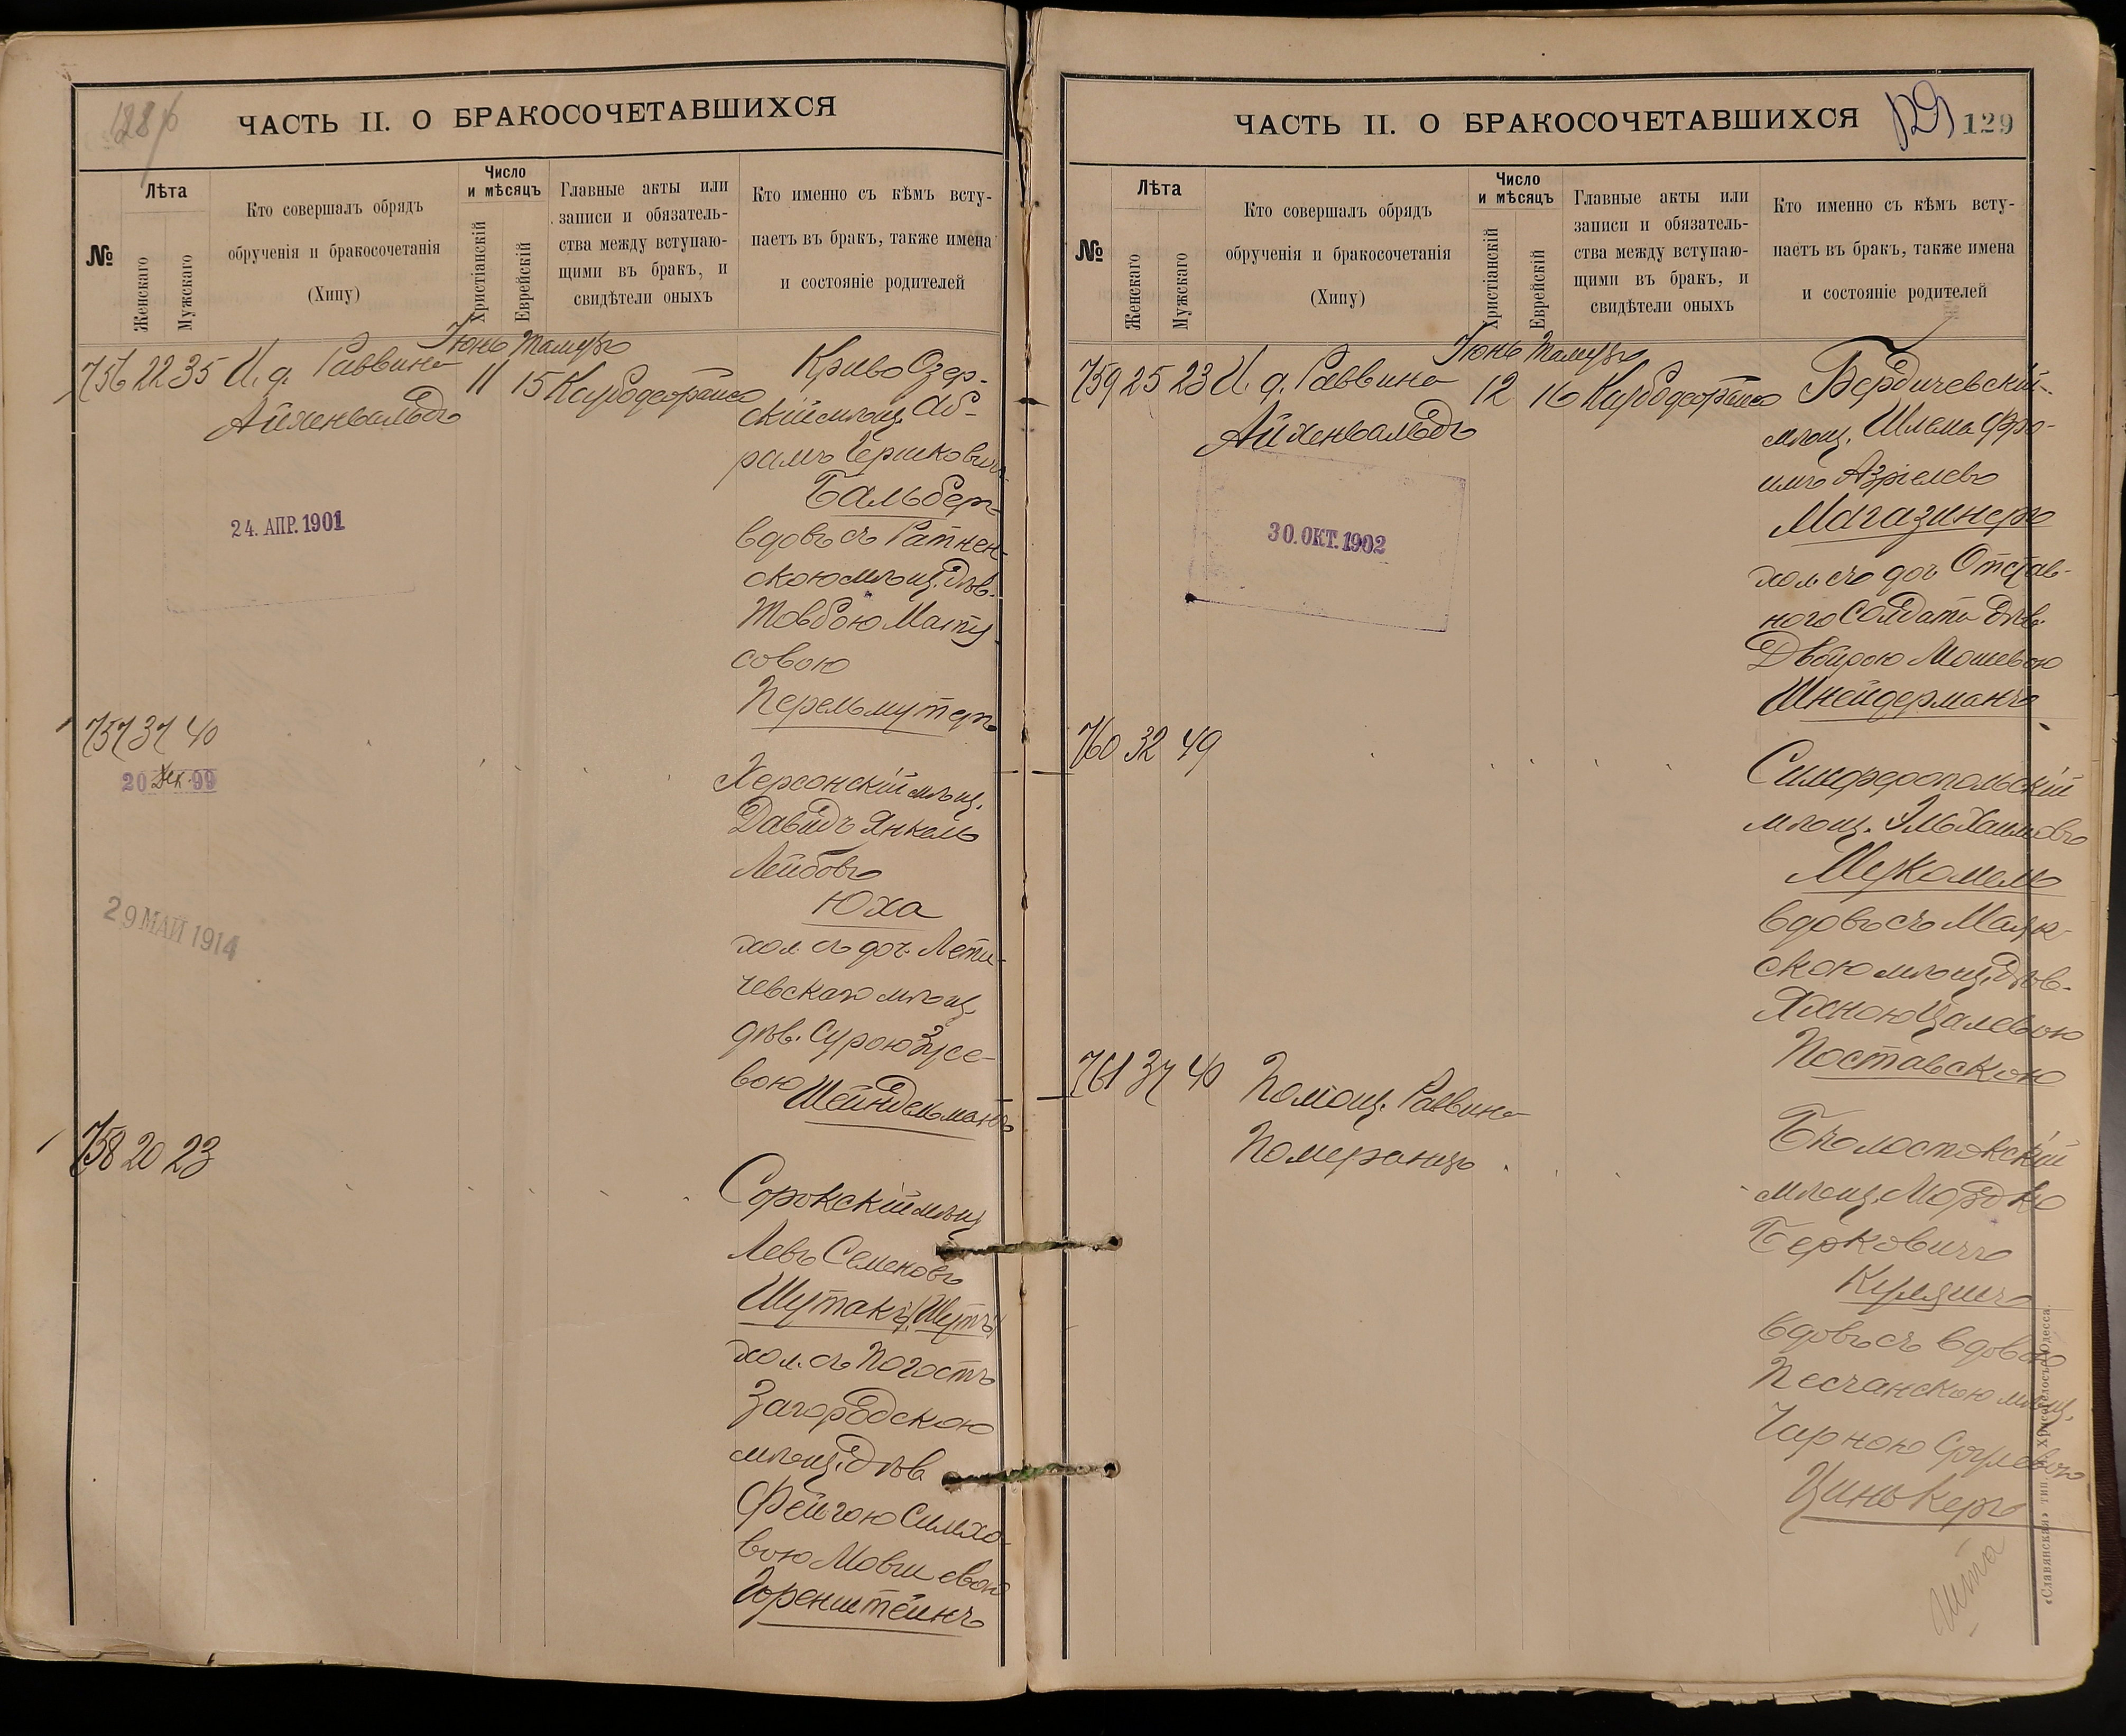 128 об
ЧАСТЬ II. О БРАКОСОЧЕТАВШИХСЯ
№
Лѣта
Женскаго
Мужскаго
Кто совершалъ обрядъ
обрученія и бракосочетанія
(Хипу)
Число
и мѣсяцъ
Христіанскій
Еврейскій
Главные акты или
записи и обязатель-
ства между вступаю-
щими въ бракъ, и
свидѣтели оныхъ
Кто именно съ кѣмъ всту-
паетъ въ бракъ, также имена
и состояніе родителей
Іюнь Тамузъ
756 22 35 И. д. Раввина 11 15
Айхенвальдъ
Криво Озер-
скій мѣщ. Аб-
рамъ Гершковичъ
Бальберъ
вдовъ съ Ратнен-
скою мѣщ. дѣв.
Товбою Мату-
совою
Перельмутеръ
24. АПР. 1901
757 37 40
20 Дек. 99
29 МАЙ 1914
Херсонскій мѣщ.
Давидъ Янкель
Лейбовъ
Юха
хол. съ доч. Лети-
чевскаго мѣщ.
дѣв. Сурою Зусе-
вою Шейндельманъ
758 20 23
Сорокскій мѣщ
Левъ Семеновъ
Шутакъ (Шутъ)
хол. съ Погостъ
Загородскою
мѣщ. дѣв
Фейгою Симхо-
вою Мовшевою
Горенштейнъ
ЧАСТЬ II. О БРАКОСОЧЕТАВШИХСЯ
129
129
№
Лѣта
Женскаго
Мужскаго
Кто совершалъ обрядъ
обрученія и бракосочетанія
(Хипу)
Число
и мѣсяцъ
Христіанскій
Еврейскій
Главные акты или
записи и обязатель-
ства между вступаю-
щими въ бракъ, и
свидѣтели оныхъ
Кто именно съ кѣмъ всту-
паетъ въ бракъ, также имена
и состояніе родителей
Іюнь Тамузъ
759 25 23 И. д. Раввина 12 16
Айхенвальдъ
Бердичевскій
мѣщ. Шлема Фро-
имъ Азріелевъ
Магазинеръ
хол. съ доч. Отстав-
ного Солдата дѣв.
Двойрою Мошевою
Шнейдерманъ
30. ОКТ. 1902
760 32 49
Симферопольскій
мѣщ. Эль Хаимовъ
Мукомель
вдовъ съ Маяк-
скою мѣщ. дѣв.
Яхною Цалевою
Поставскою
761 37 40 Помощ. Раввина
Померанцъ
Бѣлостокскій
мѣщ. Мордко
Берковичъ
Куляшъ
вдовъ съ вдовою
Песчанскою мѣщ.
Чарною Срулевою
Цинькеръ
«Славянская» тип. Н. Хрисогелосъ, Одесса.